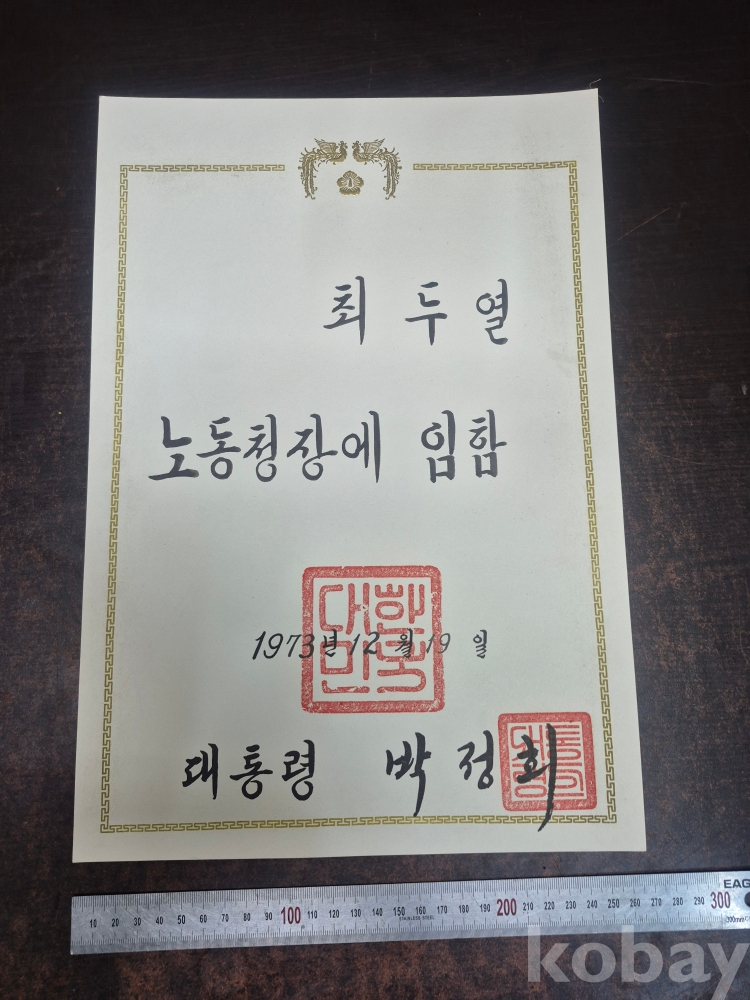 최 두 열
노동청장에 임함
대한
민국
1973년 12월 19일
대통령 박정희
10 20 30 40 50 60 70 80 90 100 110 120 130 140 150 160 170 180 190 200 210 220 230 240 250 260 270 280 290 300
STAINLESS STEEL
EAG
kobay